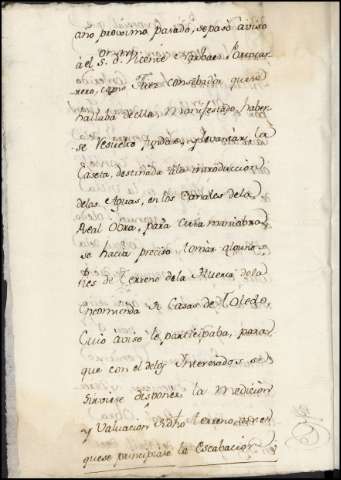 año proximo pasado, se pasó aviso
á el S. D. Vicente
como Juez
hallaba de ella Manifestado, haber
se resuelto fundar, y levantar, la
Caseta, destinada á la introduccion
de las Aguas, en los Canales de la
Real Obra, para cuia maniobra
se hacia preciso tomar algunos
de terreno de la Huerta de la
Encomienda de Casas de Toledo,
Cuio aviso le participaba, para
que con el de los Interesados, se
sirviese disponer la medicion
y Valuacion dho terreno, antes
que se principiase la Escabacion